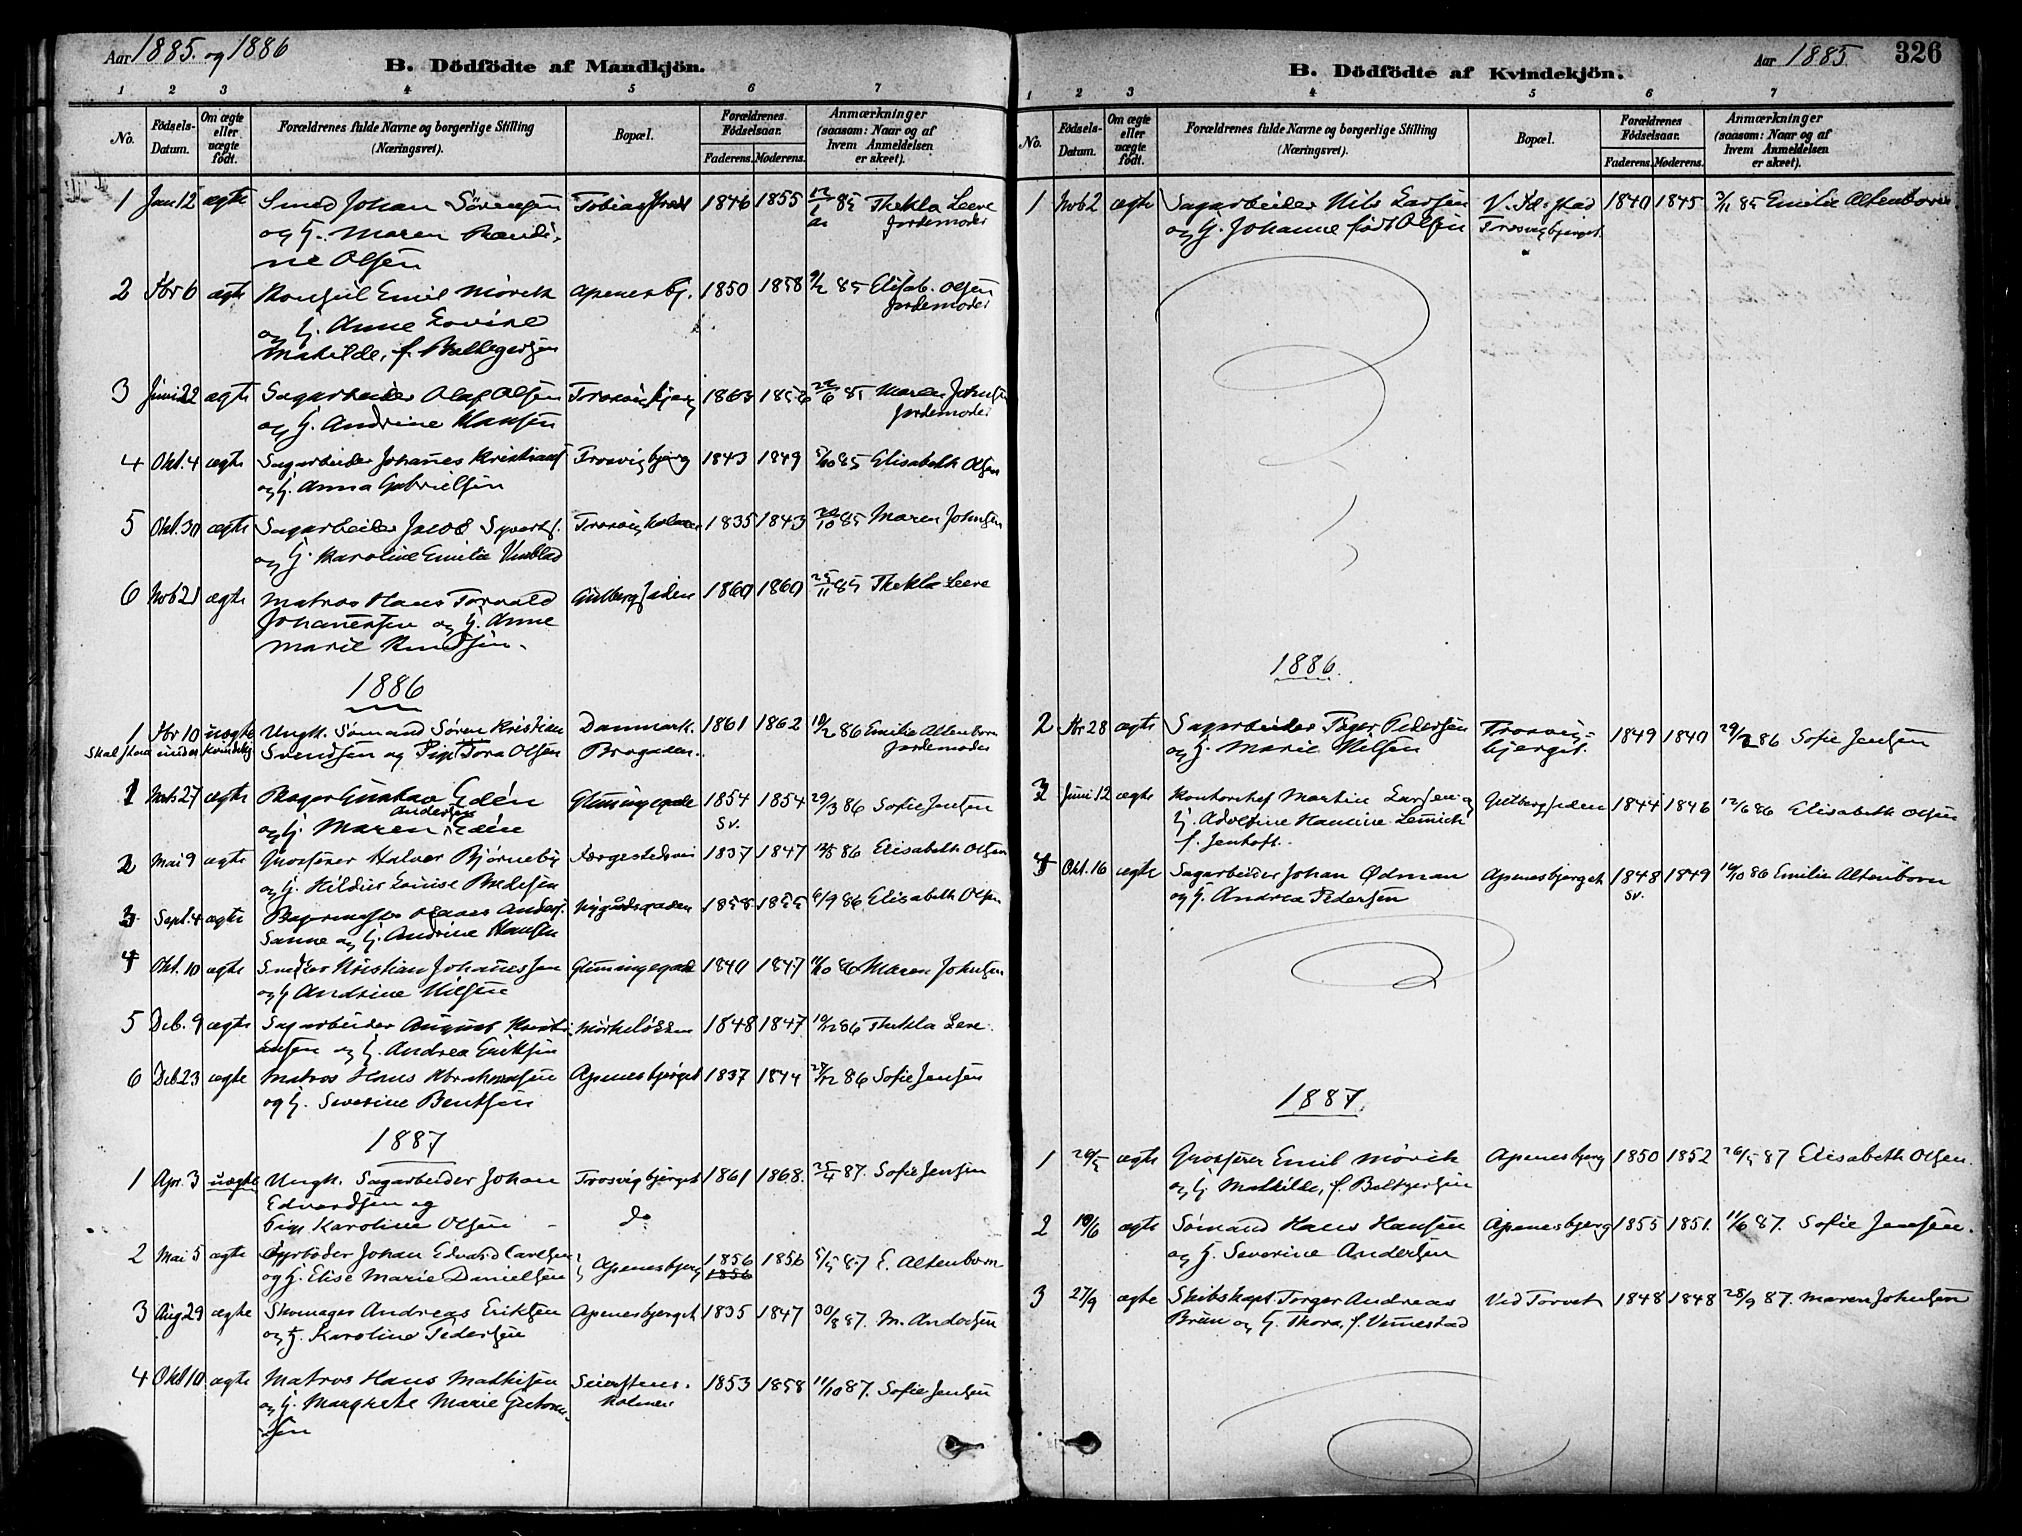 Aar 1885. og 1886
B. Dödfödte af Mandkjön.
1 2 3 4 5 6 7
No. Födsels-Datum. Om ægte eller uægte födt. Forældrenes fulde Navne og borgerlige Stilling (Næringsvei). Bopæl. Forældrenes Födselsaar. Faderens. Moderens. Anmærkninger (saasom: Naar og af hvem Anmeldelsen er skeet).
1 Jan 12 ægte Smed Johan Sörensen 1846 1855 Thekla Leere
og H. Maren Jordemoder
ne Olsen
2 Fbr 6 ægte Konsul Emil Mörck Apenesbj. 1850 1858 9/2 85 Elisab. Olsen
og H. Anne Lovise Jordemoder
Mathilde, f.
3 Juni 22 ægte Sagarbeider Olaf Olsen Trosvigbjerg 1863 1856 22/6 85 Maren Johnsen
og H. Andrine Hansen Jordemoder
4 Okt. 4 ægte Sagarbeider Johanes Kristians Trosvigbjerg 1843 1849 5/10 85 Elisabeth Olsen
og H. Anna Gabrielsen
5 Okt. 30 ægte Sagarbeider Jacob Syverts. Trosvigholmen 1835 1843 85 Maren Johnsen
og H. Karoline Emilie
6 Nob 21 ægte Matros Hans Torvald 1860 1860 25/11 85 Thekla Leere
Johanesen og H. Anne
Marie Knudsen.
1886
1 Fbr 10 uægte Ungk. Sømand Søren Kristian Danmark. 1861 1862 10/2 86 Emilie Altenborn
Skal staa under Kvindekj Svendsen og Pige Dora Olsen Brogaden. Jordemoder
1 Mrts 27 ægte Bager Gustav Edén Glemmegade 1854 1854 29/3 86 Sofie Jensen
Andersen Sv.
og H. Maren Edén
2 Mai 9 ægte Grosserer Halvor Bjørneby Færgestedsvei 1837 1847 12/5 86 Elisabeth Olsen
og H. Hilda Louise
3 Sept. 4 ægte Bagermester Anders. Nygårdsgaden 1858 1855 6/9 86 Elisabeth Olsen
Sanne og H. Andrine Hansen
4 Okt. 10 ægte Snedker Kristian Johanessen Glemmegade 1840 1847 11/10 86 Maren Johnsen
og H Andrine Nilsen
5 Dcb. 9 ægte Sagarbeider August 1848 1847 10/12 86 Thekla Lere.
og H. Andrea Eriksen
6 Dcb 23 ægte Matros Hans Abrahamsen Apenesbjerget 1837 1844 28/12 86 Sofie Jensen
og H. Severine Bentsen
1887
1 Apr. 3 uægte Ungk. Sagarbeider Johan Trosvigbjerget 1861 1868. 25/4 87. Sofie Jensen
Edvardsen og
Pige Karoline Olsen do
2 Mai 5 ægte Fyrbøder Johan Edvard Carlsen Apenesbjerg 1856 1856 5/5 87 E. Altenborn
og H. Elise Marie Danielsen 1856
3 Aug 29 ægte Skomager Andreas Eriksen Apenesbjerget 1835 1847 30/8 87. M. Andersen
og H. Karoline Pedersen
4 Okt 10 ægte Matros Hans Mathisen 1853 1858 11/10 87. Sofie Jensen
og H. Margrete Marie holmen
sen
326
Aar 1885
B. Dödfödte af Kvindekjön.
1 2 3 4 5 6 7
No. Födsels-Datum. Om ægte eller uægte födt. Forældrenes fulde Navne og borgerlige Stilling (Næringsvei). Bopæl. Forældrenes Födselsaar. Faderens. Moderens. Anmærkninger (saasom: Naar og af hvem Anmeldelsen er skeet).
1 Nob 2 ægte Sagarbeider Nils Larsen 1840 1845 3/11 85 Emilie Altenborn
og H. Johanne født Olsen Trosvigbjerget.
1886.
2 Fbr 28 ægte Sagarbeider Pedersen Trosvig- 1849 1840 86 Sofie Jensen
og H. Marie Nilsen bjerget.
3 Juni 12 ægte Kontorchef Martin Larsen og 1844 1846 12/6 86 Elisabeth Olsen
H. Adolfine Hansine
f. Jenhoft.
4 Okt. 16 ægte Sagarbeider Johan Ødman Apenesbjerget 1848 1849 16/10 86 Emilie Altenborn
og H. Andrea Pedersen Sv.
1887.
1 26/5 ægte Grosserer Emil Mörck Apenesbjerg 1850 1852 26/5 87 Elisabeth Olsen.
og H. Mathilde, f. Baltzersen
2 10/6 ægte Sømand Hans Hansen Apenesbjerg 1855 1851. 11/6 87. Sofie Jensen.
og H. Severine Andersen
3 27/9 ægte Skibskapt. Torger Andreas Vid Torvet 1848 1848 28/9 87. Maren Johnsen
Bruun og H. Thora, f.